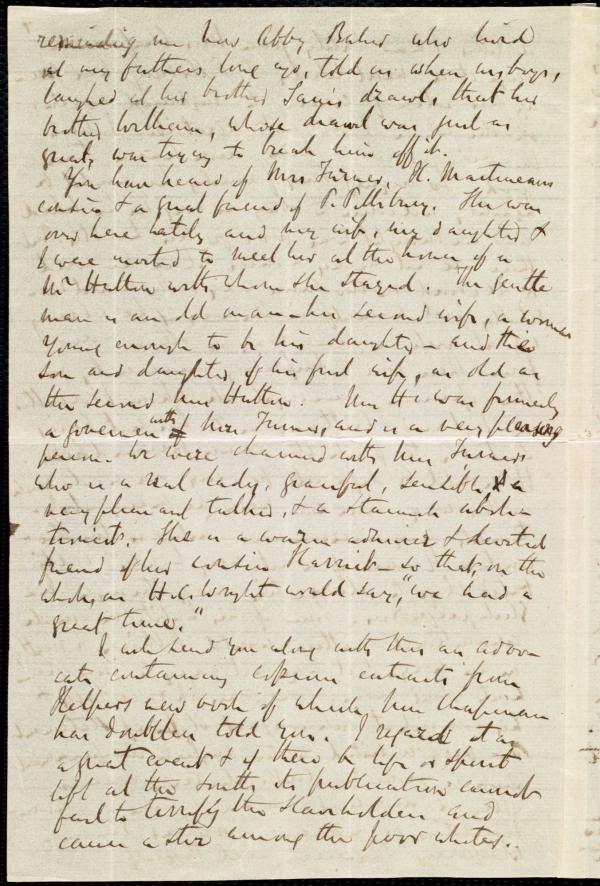 reminding me how Abby Baker who lived
at my fathers long ago, told us when us boys,
laughed at her brother drawl, that her
brother William, whose drawl was just as
great, was trying to break him off it.
You have heard of Mrs Turner, H. Martineaus
cousin & a great friend of P. Pillsbury. She was
over here lately and my wife, my daughter &
I were invited to meet her at the house of a
Mr Hutton with whom she stayed. The gentle
man is an old man – his second wife, a woman
young enough to be his daughter – and the
son and daughter of his first wife, as old as
the second Mrs Hutton. Mrs H. was formerly
a governess with Mrs Turner, and is a very pleasing
person. We were charmed with Mrs Turner
who is a real lady, graceful, sensible & a
very pleasant talker, & a staunch aboli-
tionist. She is a warm admirer & devoted
friend of her cousin Harriet – so that, on the
whole, as H.C. Wright would say, "we had a
great time."
I will send you along with this an Advo-
cate containing copious extracts from
Helpers new work of which Mrs Chapman
has doubtless told you. I regard it as
a great event & if there be life or spirit
left at the South its publication cannot
fail to terrify the slaveholders and
cause a stir among the poor whites.